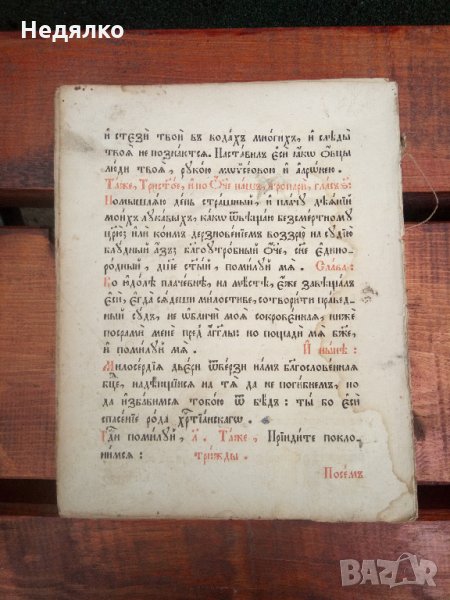 Недялко
и҆ стезѝ твоѝ въ водахъ многихъ, и҆ слѣды
твоѧ̀ не познаютсѧ. Наставилъ є҆сѝ ꙗ҆́кѡ ѻ҆́вцы
люди твоѧ̀, рукою мѡѷсеовою и҆ а҆арѡ́нею.
Та́же, Трист҃о́е, и҆ по Ѻ҆́ч҃е на́шъ, тропарѝ, гла́съ
Помышлѧ́ю день страшный, и҆ пла́чу дѣѧ́нїй
мои́хъ лукавыхъ, ка́кѡ ѿвѣща́ю безсмертному
цр҃ю̀; и҆лѝ кои́мъ дерзновенїемъ воззрю̀ на судїю̀
блудный а҆́зъ; благоутробный ѻ҆́ч҃е, сн҃е є҆дино-
родный, дш҃е ст҃ый, помилуй мѧ̀. Слава:
Во ю҆до́лѣ плаче́внѣ, на мѣ́стѣ, є҆́же завѣща́лъ
є҆сѝ, є҆гда̀ сѧ́деши милостиве, сотвори́ти пра́вед-
ный судъ, не ѡ҆бличѝ моѧ̀ сокрове́ннаѧ, нижѐ
посрамѝ менѐ пред̾ а҆́гг҃лы: но пощадѝ мѧ̀ бж҃е,
и҆ помилуй мѧ̀. И҆ ны́нѣ:
Милосердїѧ две́ри ѿве́рзи на́мъ благословеннаѧ
бц҃е, надѣ́ющїисѧ на тѧ̀ да не погибнемъ, но
да и҆збавимсѧ тобо́ю ѿ бѣ́дъ: ты̀ бо є҆сѝ
спасенїе ро́да хр҃тїанскагѡ.
Гд҃и помилуй, л҃. Та́же, Прїиди́те покло-
ни́мсѧ: трижды.
Посе́мъ
BAZAR